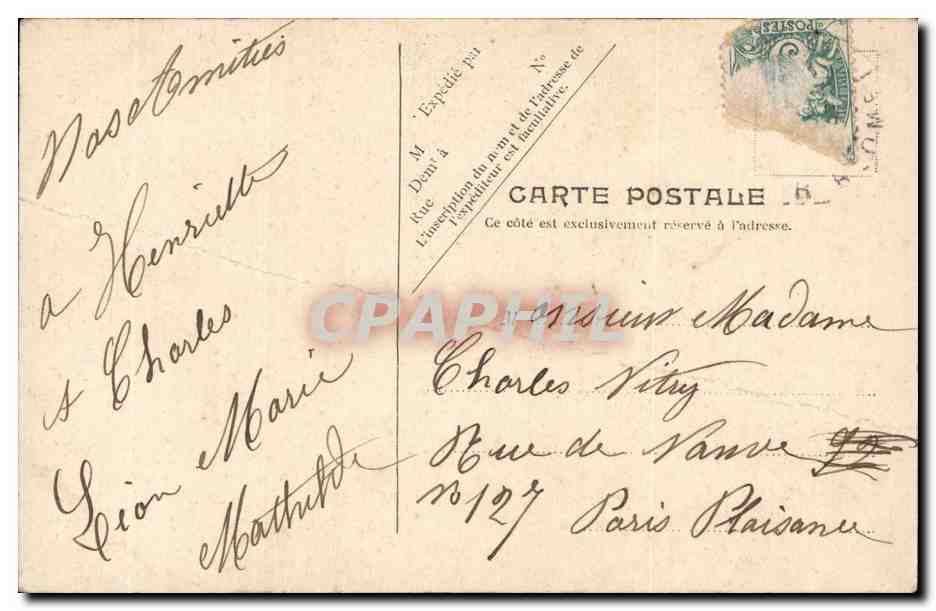 Nos Amitiés
a Henriette
et Charles
Léon Marie
Mathilde
Expédié par
M
No
Demt à
Rue
L'inscription du nom et de l'adresse de
l'expéditeur est facultative.
POSTES
CARTE POSTALE
Ce côté est exclusivement réservé à l'adresse.
CPAPHIL
Monsieur Madame
Charles Vitry
Rue de Vanve
No 127
Paris Plaisance